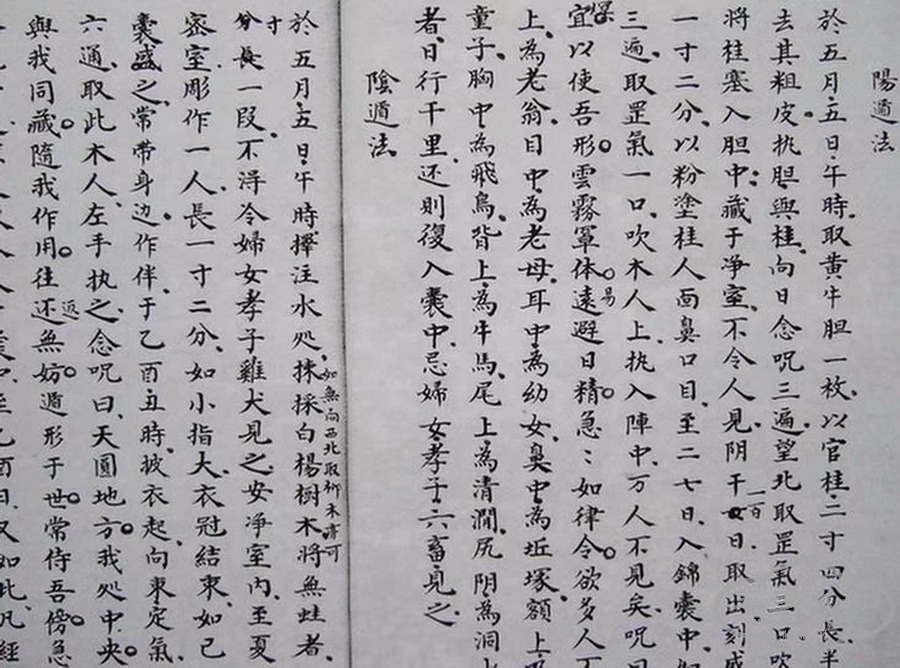 陽遁法
於五月五日午時取黃牛胆一枚以官桂二寸四分長
去其粗皮执胆與桂向日念呪三遍望北取罡氣三口吹
將桂塞入胆中藏于净室不令人見阴干一百日取出刻成
一寸二分以粉塗桂人面鼻口目至二七日入錦囊中
三遍取罡氣一口吹木人上执入陣中万人不見矣呪曰
宜以使吾形雲霧罩体遠避日精急二如律令欲多人
上為老翁目中為老母耳中為幼女臭中為坵塚額上
童子胸中為飛鳥背上為牛馬尾上為清澗尻阴為洞
者日行千里还則復入囊中忌婦女孝子六畜見之
陰遁法
於五月五日午時擇注水处採白楊樹木將無蛀者
如無向西北取柳木亦可
寸分長一段不淂冷婦女孝子雞犬見之安净室内至夏
宻室彫作一人長一寸二分如小指大衣冠結束如己
囊盛之常带身边作伴于乙酉丑時披衣起向東定氣
六通取此木人左手执之念呪曰天圓地方我处中央
與我同藏隨我作用往还無妨遁形于世常侍吾傍急
返